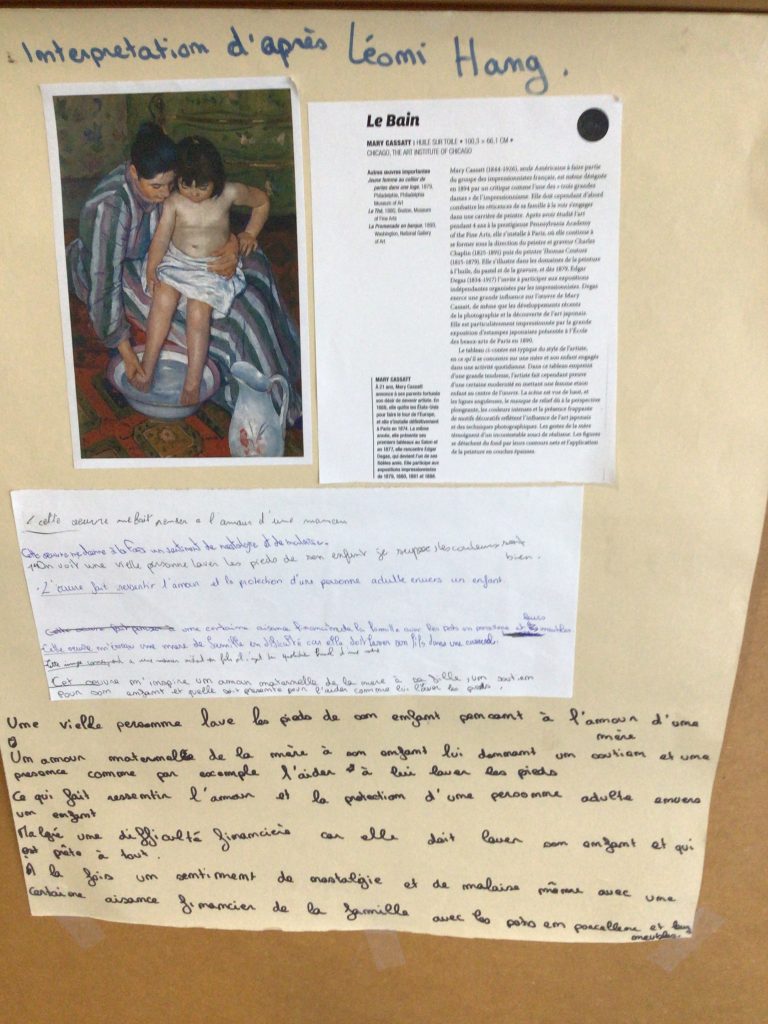 Interpretation d'après Léomi Hang.
Le Bain
MARY CASSATT | HUILE SUR TOILE • 100,3 × 66,1 CM •
CHICAGO, THE ART INSTITUTE OF CHICAGO
Autres œuvres importantes
Jeune femme au collier de
perles dans une loge, 1879,
Philadelphie, Philadelphia
Museum of Art
Le Thé, 1880, Boston, Museum
of Fine Arts
La Promenade en barque, 1893,
Washington, National Gallery
of Art
Mary Cassatt (1844-1926), seule Américaine à faire partie
du groupe des impressionnistes français, est même désignée
en 1894 par un critique comme l'une des « trois grandes
dames » de l'impressionnisme. Elle doit cependant d'abord
combattre les réticences de sa famille à la voir s'engager
dans une carrière de peintre. Après avoir étudié l'art
pendant 4 ans à la prestigieuse Pennsylvania Academy
of the Fine Arts, elle s'installe à Paris, où elle continue à
se former sous la direction du peintre et graveur Charles
Chaplin (1825-1891) puis du peintre Thomas Couture
(1815-1879). Elle s'illustre dans les domaines de la peinture
à l'huile, du pastel et de la gravure, et dès 1879, Edgar
Degas (1834-1917) l'invite à participer aux expositions
indépendantes organisées par les impressionnistes. Degas
exerce une grande influence sur l'œuvre de Mary
Cassatt, de même que les développements récents
de la photographie et la découverte de l'art japonais.
Elle est particulièrement impressionnée par la grande
exposition d'estampes japonaises présentée à l'École
des beaux-arts de Paris en 1890.
Le tableau ci-contre est typique du style de l'artiste,
en ce qu'il se concentre sur une mère et son enfant engagés
dans une activité quotidienne. Dans ce tableau empreint
d'une grande tendresse, l'artiste fait cependant preuve
d'une certaine modernité en mettant une femme et son
enfant au centre de l'œuvre. La scène est vue de haut, et
les lignes anguleuses, le manque de relief dû à la perspective
plongeante, les couleurs intenses et la présence frappante
de motifs décoratifs reflètent l'influence de l'art japonais
et des techniques photographiques. Les gestes de la mère
témoignent d'un incontestable souci de réalisme. Les figures
se détachent du fond par leurs contours nets et l'application
de la peinture en couches épaisses.
MARY CASSATT
À 21 ans, Mary Cassatt
annonce à ses parents fortunés
son désir de devenir artiste. En
1866, elle quitte les États-Unis
pour faire le tour de l'Europe,
et elle s'installe définitivement
à Paris en 1874. La même
année, elle présente ses
premiers tableaux au Salon et
en 1877, elle rencontre Edgar
Degas, qui devient l'un de ses
fidèles amis. Elle participe aux
expositions impressionnistes
de 1879, 1880, 1881 et 1886.
cette œuvre me fait penser a l'amour d'une maman
Cette œuvre me donne à la fois un sentiment de nostalgie et de malaise.
On voit une vielle personne laver les pieds de son enfant je suppose, les couleurs sont
bien.
• L'œuvre fait ressentir l'amour et la protection d'une personne adulte envers un enfant.
Cette œuvre fait penser à une certaine aisance financière de la famille avec les pots en porcelaine et leurs meubles
Cette œuvre m'évoque une mère de famille en difficulté car elle doit laver son fils dans une
Cet œuvre m'inspire un amour maternelle de la mère à sa fille, un soutien
pour son enfant et quelle soit présente pour l'aider comme lui laver les pieds.
Une vielle personne lave les pieds de son enfant pensant à l'amour d'une
mère
Un amour maternelle de la mère à son enfant lui donnant un soutien et une
presence comme par excemple l'aider à lui laver les pieds
Ce qui fait ressentir l'amour et la protection d'une personne adulte envers
un enfant
Malgré une difficulté financière car elle doit laver son enfant et qui
est prête à tout.
A la fois un sentiment de nostalgie et de malaise même avec une
certaine aisance financier de la famille avec les pots en porcellene et leus
meubles.